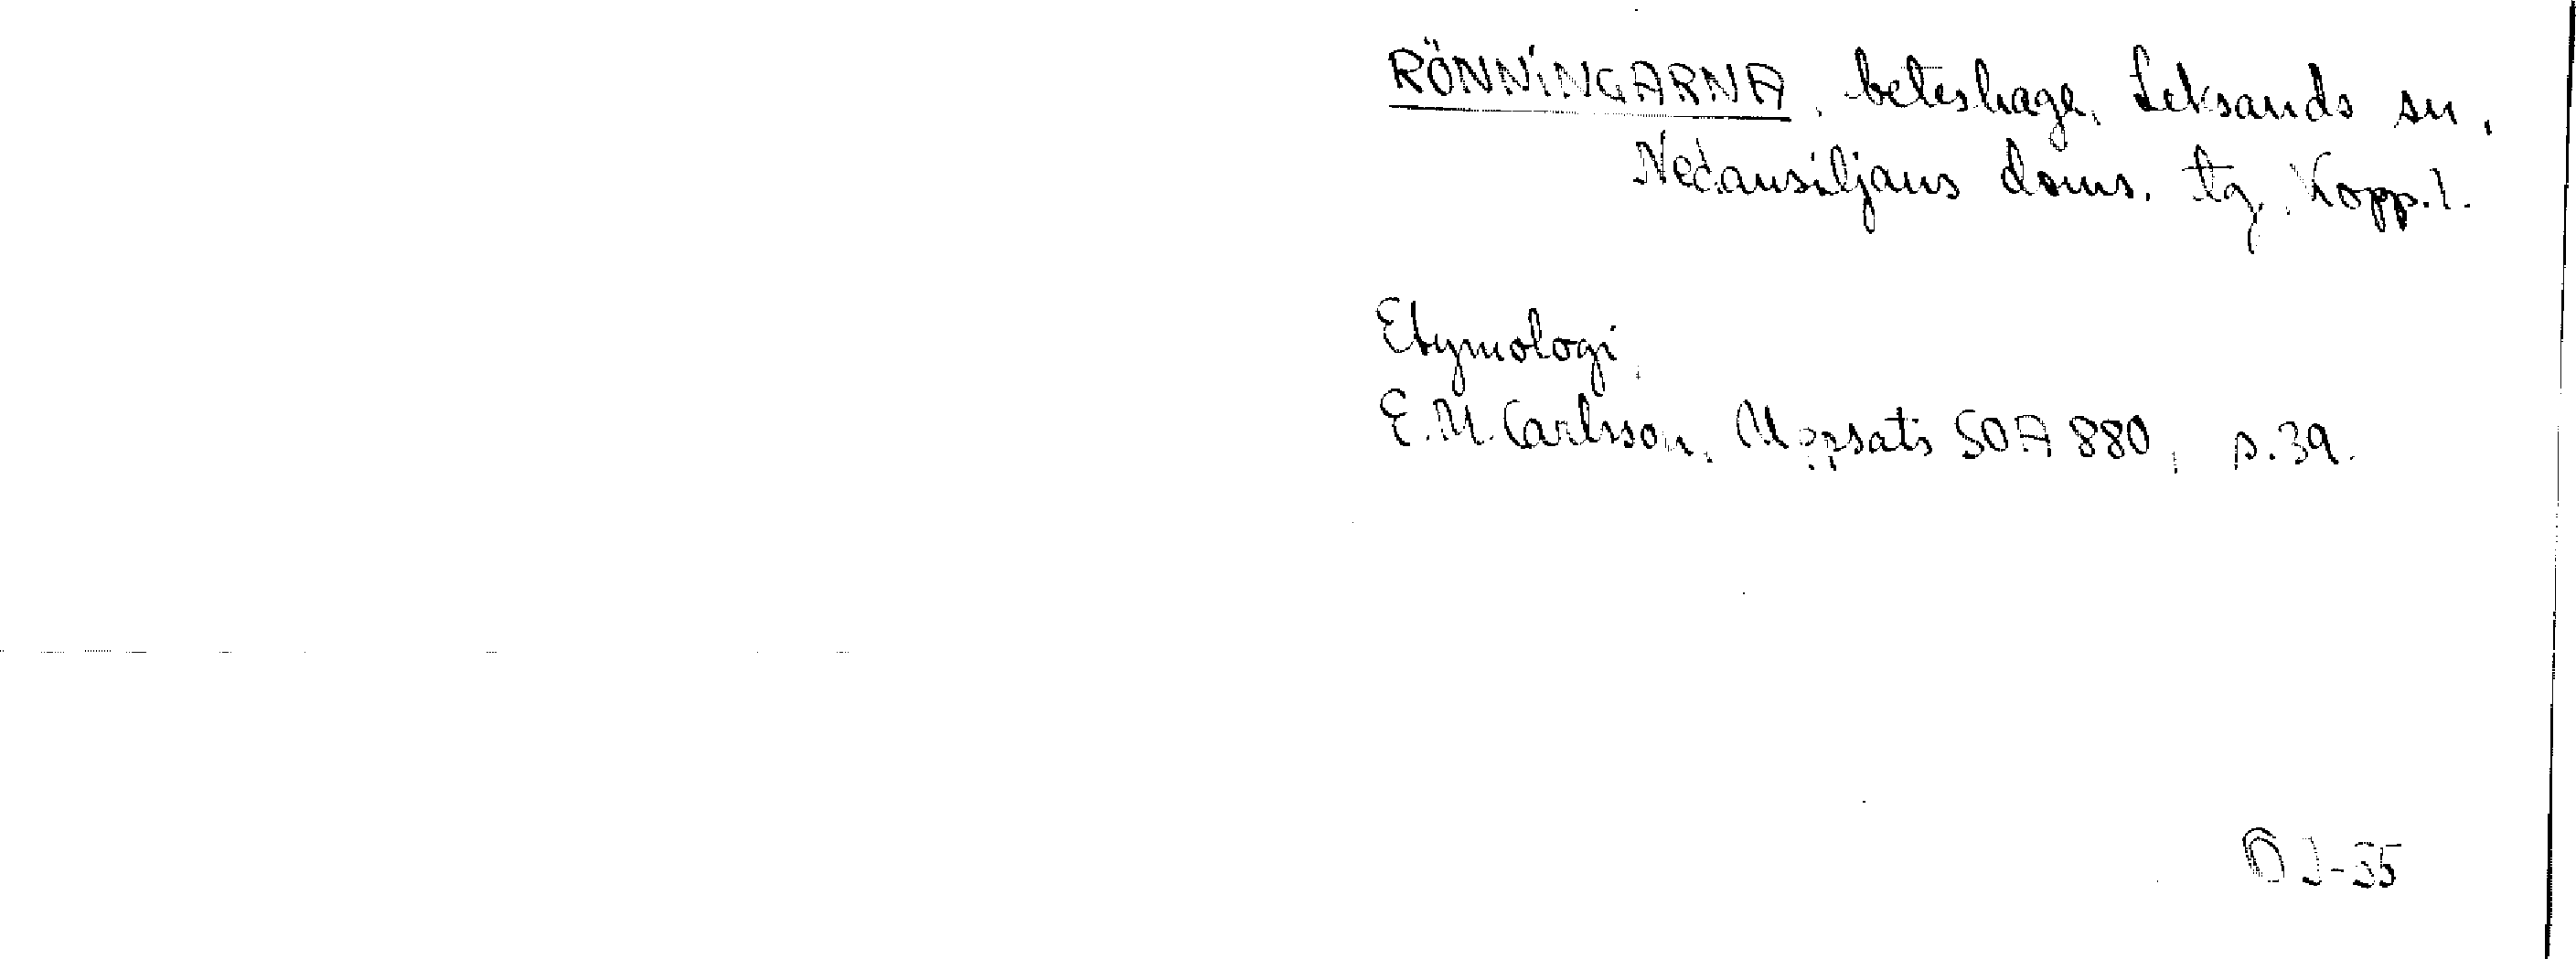 RÖNNINGARNA, beteshage, Leksands sn,
Nedansiljans doms. tg, Kopp. l.
Etymologi,
E.M. Carlsson, Uppsats SOA 880, s. 39.